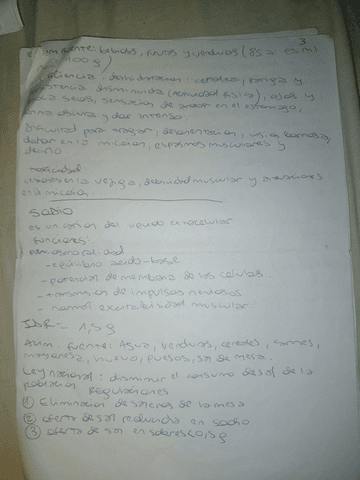 3
fuente: bebidas, frutas y verduras (85 a 95 ml
100 g)
deshidratacion: cefalea, fatiga y
resistencia disminuida (actividad fisica), ojos y
boca secos, sensacion de ardor en el estomago,
orina obscura y olor intenso.
Dificultad para tragar, desorientacion, vision borrosa,
dolor en la miccion, espasmos musculares y
delirio
toxicidad:
en la vejiga, debilidad muscular y
en la miccion.
SODIO
es un cation del liquido extracelular
funciones:
- equilibrio acido-base
- potencial de membrana de las celulas.
- transmision de impulsos nerviosos
- normal excitabilidad muscular.
IDR = 1,5 g
Alim. fuente: Agua, verduras, cereales, carnes,
mayonesa, huevo, quesos, sal de mesa.
Ley nacional: disminuir el consumo de sal de la
poblacion Regulaciones
① Eliminacion de saleros de la mesa
② oferta de sal reducida en sodio
③ oferta de sal en sobres <0,5 g